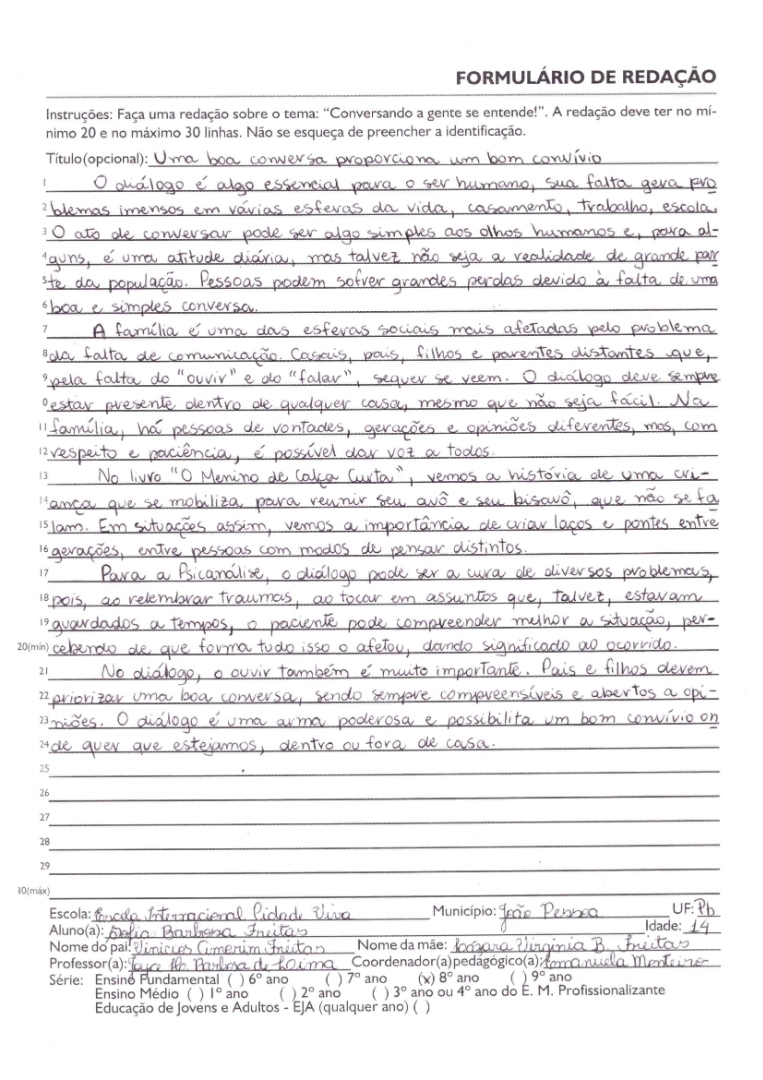 FORMULÁRIO DE REDAÇÃO
Instruções: Faça uma redação sobre o tema: “Conversando a gente se entende!”. A redação deve ter no mí-
nimo 20 e no máximo 30 linhas. Não se esqueça de preencher a identificação.
Título(opcional): Uma boa conversa proporciona um bom convívio
1 O diálogo é algo essencial para o ser humano, sua falta gera pro
2 blemas imensos em várias esferas da vida, casamento, trabalho, escola.
3 O ato de conversar pode ser algo simples aos olhos humanos e, para al-
4 guns, é uma atitude diária, mas talvez não seja a realidade de grande par
5 te da população. Pessoas podem sofrer grandes perdas devido à falta de uma
6 boa e simples conversa.
7 A família é uma das esferas sociais mais afetadas pelo problema
8 da falta de comunicação. Casais, pais, filhos e parentes distantes que,
9 pela falta do "ouvir" e do "falar", sequer se veem. O diálogo deve sempre
0 estar presente dentro de qualquer casa, mesmo que não seja fácil. Na
11 família, há pessoas de vontades, gerações e opiniões diferentes, mas, com
12 respeito e paciência, é possível dar voz a todos.
13 No livro "O Menino de Calça Curta", vemos a história de uma cri-
14 ança que se mobiliza para reunir seu avô e seu bisavô, que não se fa
15 lam. Em situações assim, vemos a importância de criar laços e pontes entre
16 gerações, entre pessoas com modos de pensar distintos.
17 Para a Psicanálise, o diálogo pode ser a cura de diversos problemas,
18 pois, ao relembrar traumas, ao tocar em assuntos que, talvez, estavam
19 guardados a tempos, o paciente pode compreender melhor a situação, per-
20(mín) cebendo de que forma tudo isso o afetou, dando significado ao ocorrido.
21 No diálogo, o ouvir também é muito importante. Pais e filhos devem
22 priorizar uma boa conversa, sendo sempre compreensíveis e abertos a opi-
23 niões. O diálogo é uma arma poderosa e possibilita um bom convívio on
24 de quer que estejamos, dentro ou fora de casa.
25
26
27
28
29
30(máx)
Escola: Escola Internacional Cidade Viva Município: João Pessoa UF: Pb
Aluno(a): Sofia Barbosa Freitas Idade: 14
Nome do pai: Vinicius Amorim Freitas Nome da mãe: Virginia B. Freitas
Professor(a): Barbosa de Coordenador(a)pedagógico(a): Emanuela Monteiro
Série: Ensino Fundamental ( ) 6º ano ( ) 7º ano (x) 8º ano ( ) 9º ano
Ensino Médio ( ) 1º ano ( ) 2º ano ( ) 3º ano ou 4º ano do E. M. Profissionalizante
Educação de Jovens e Adultos - EJA (qualquer ano) ( )